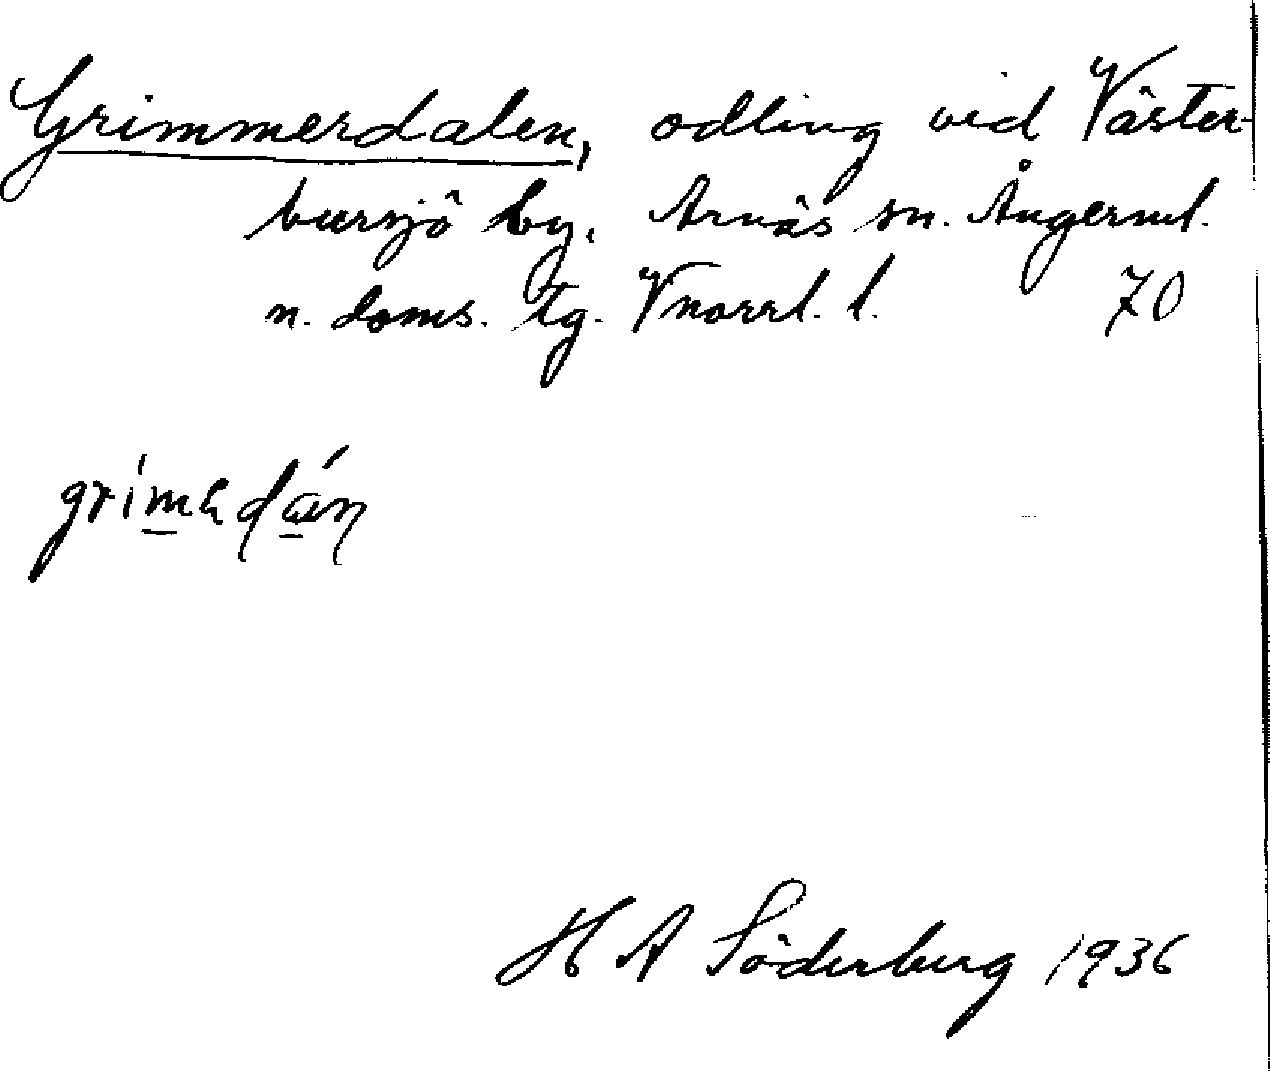 Grimmerdalen, odling vid Väster-
bursjö by, Arnäs sn. Ångerml.
n. doms. tg. Vnorrl. l. 70
H A Söderberg 1936